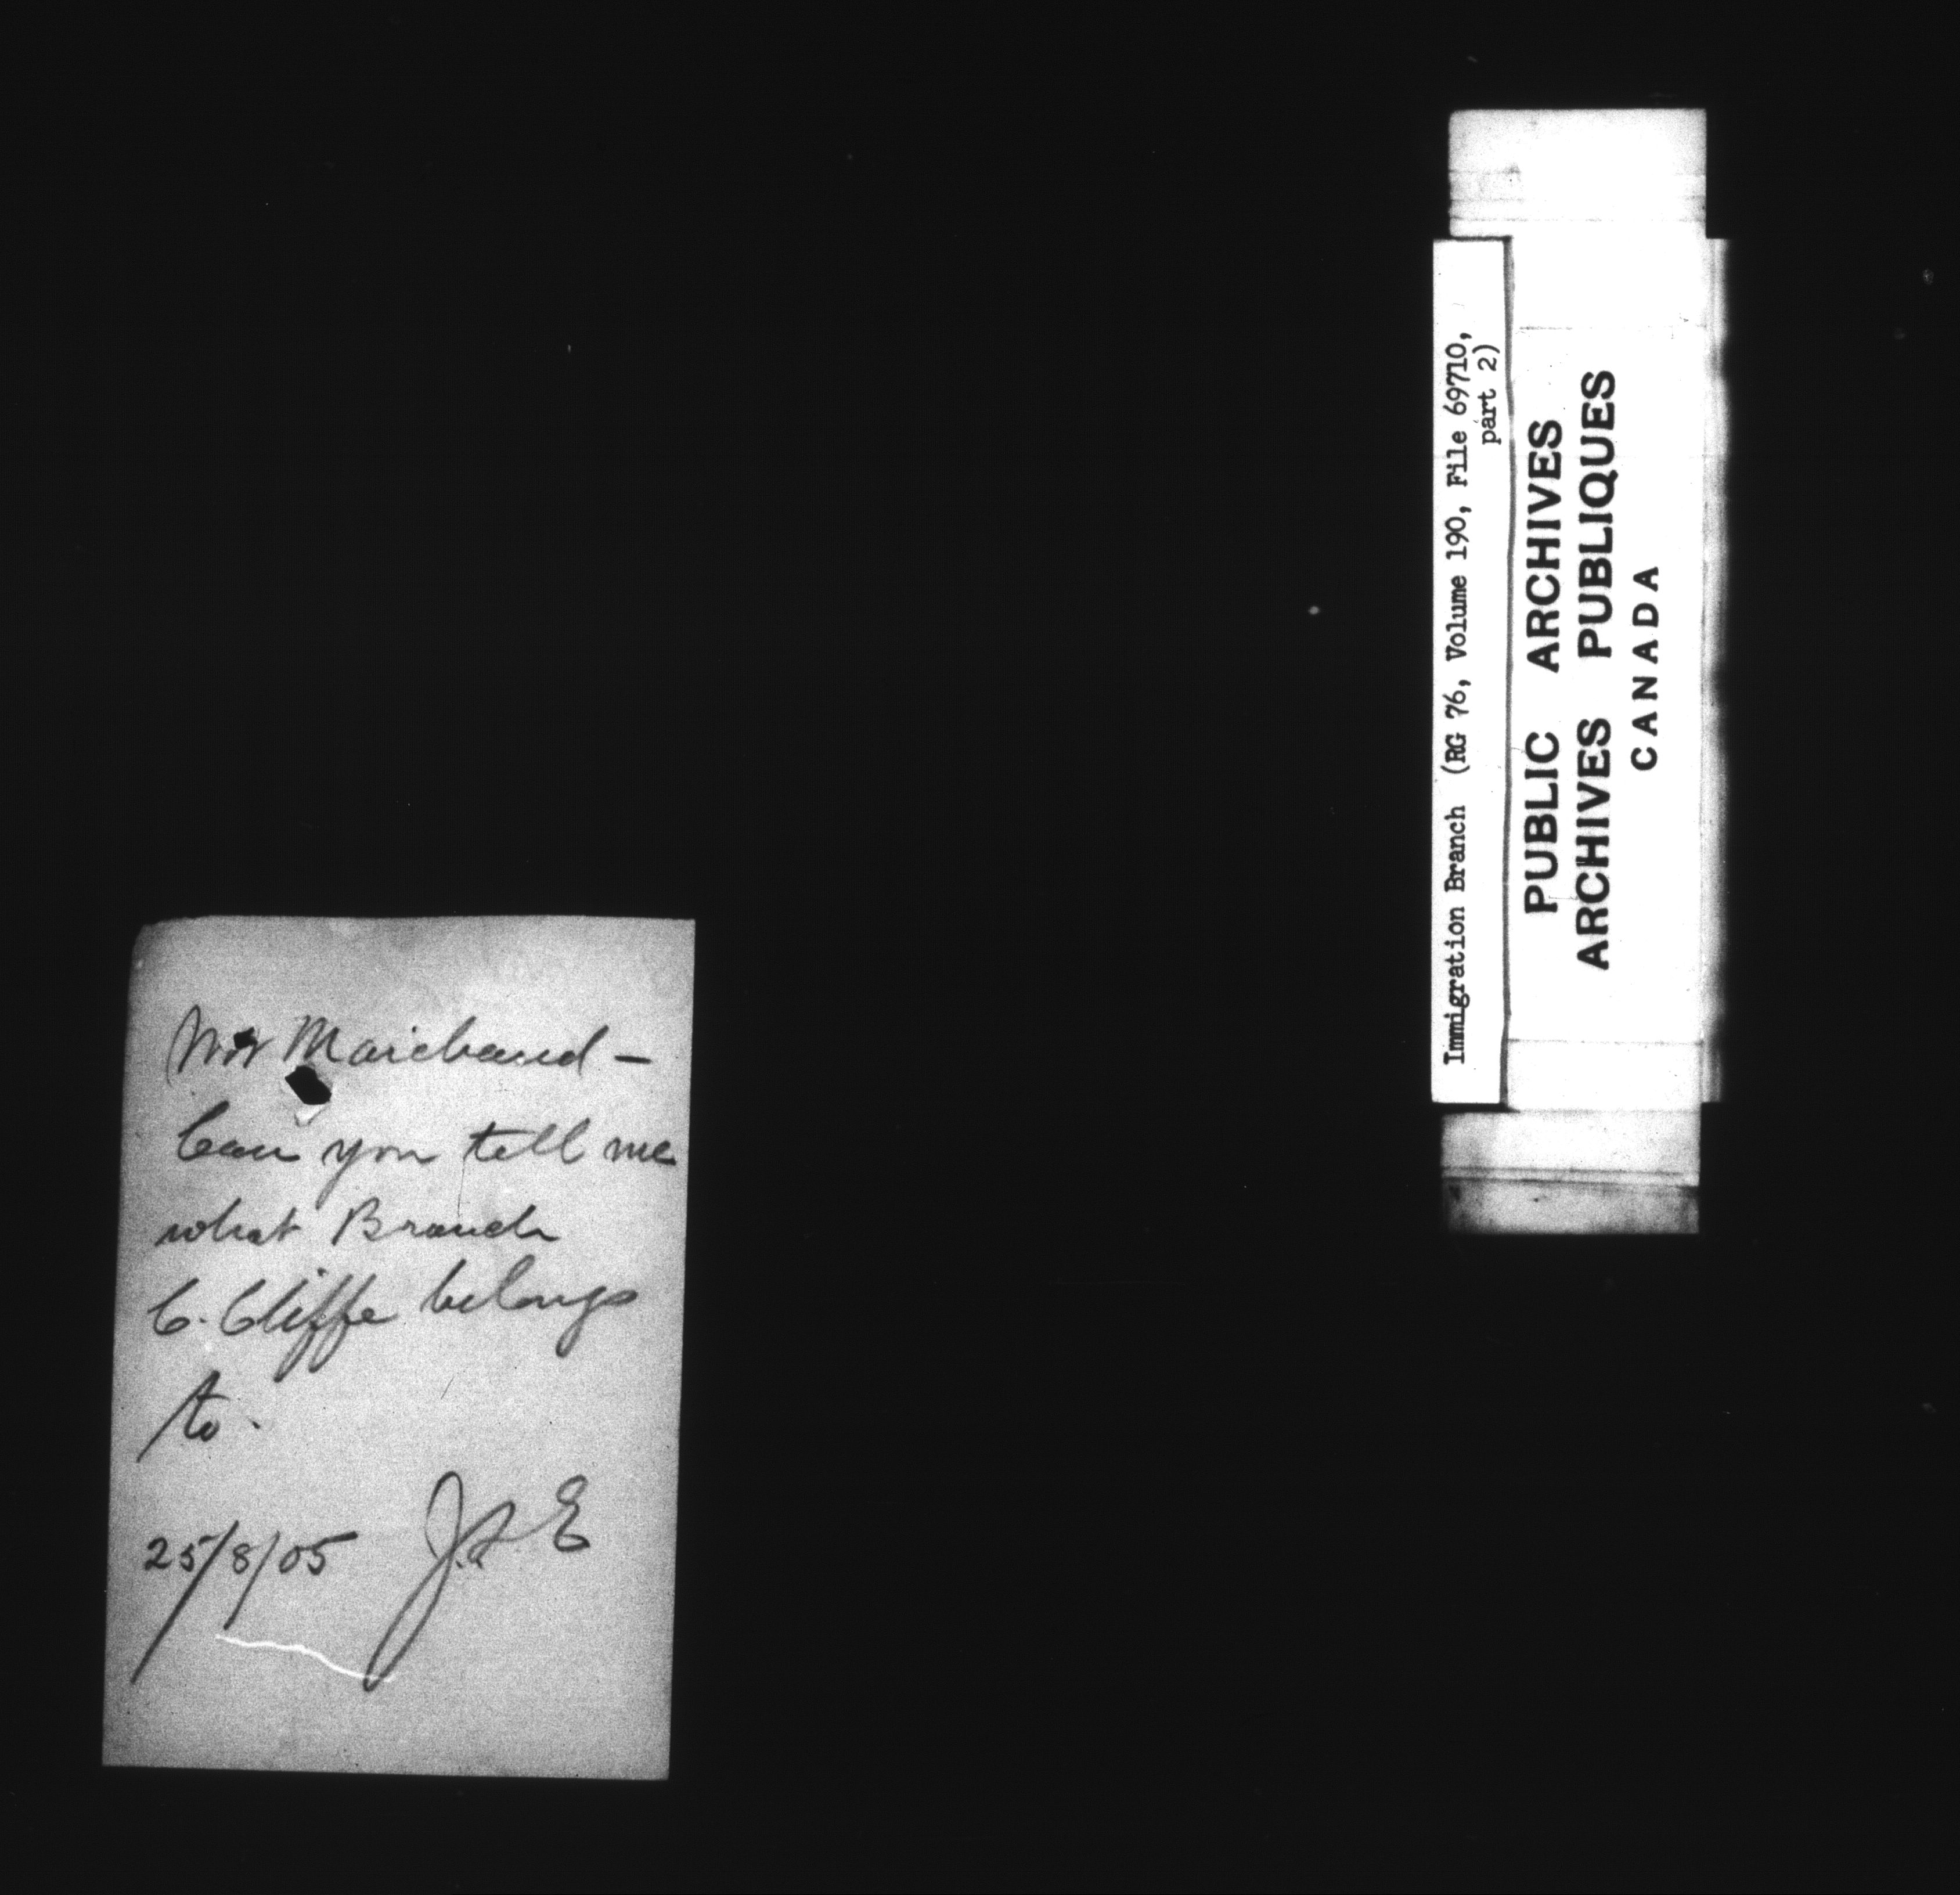 Mr Marchand –
Can you tell me
what Branch
C. Cliffe belongs
to.
25/8/05 J.S.E
Immigration Branch (RG 76, Volume 190, File 69710,
part 2)
PUBLIC ARCHIVES
ARCHIVES PUBLIQUES
CANADA